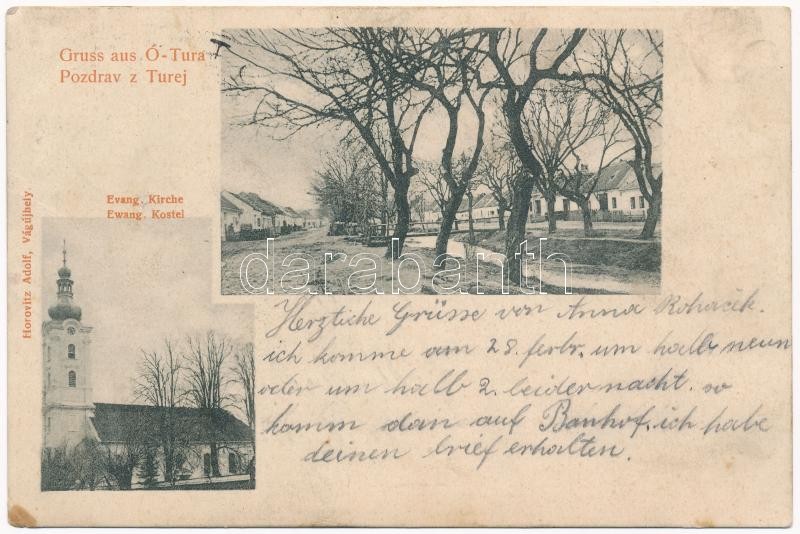 Gruss aus Ó-Tura
Pozdrav z Turej
Evang. Kirche
Ewang. Kostel
Horovitz Adolf, Vágújhely.
darabanth
Herzliche Grüsse von Anna Rohaček.
ich komme am 28. ferbr. um halb neun
oder um halb 2. beider nacht. so
komm dan auf Banhof. ich habe
deinen brief erhalten.